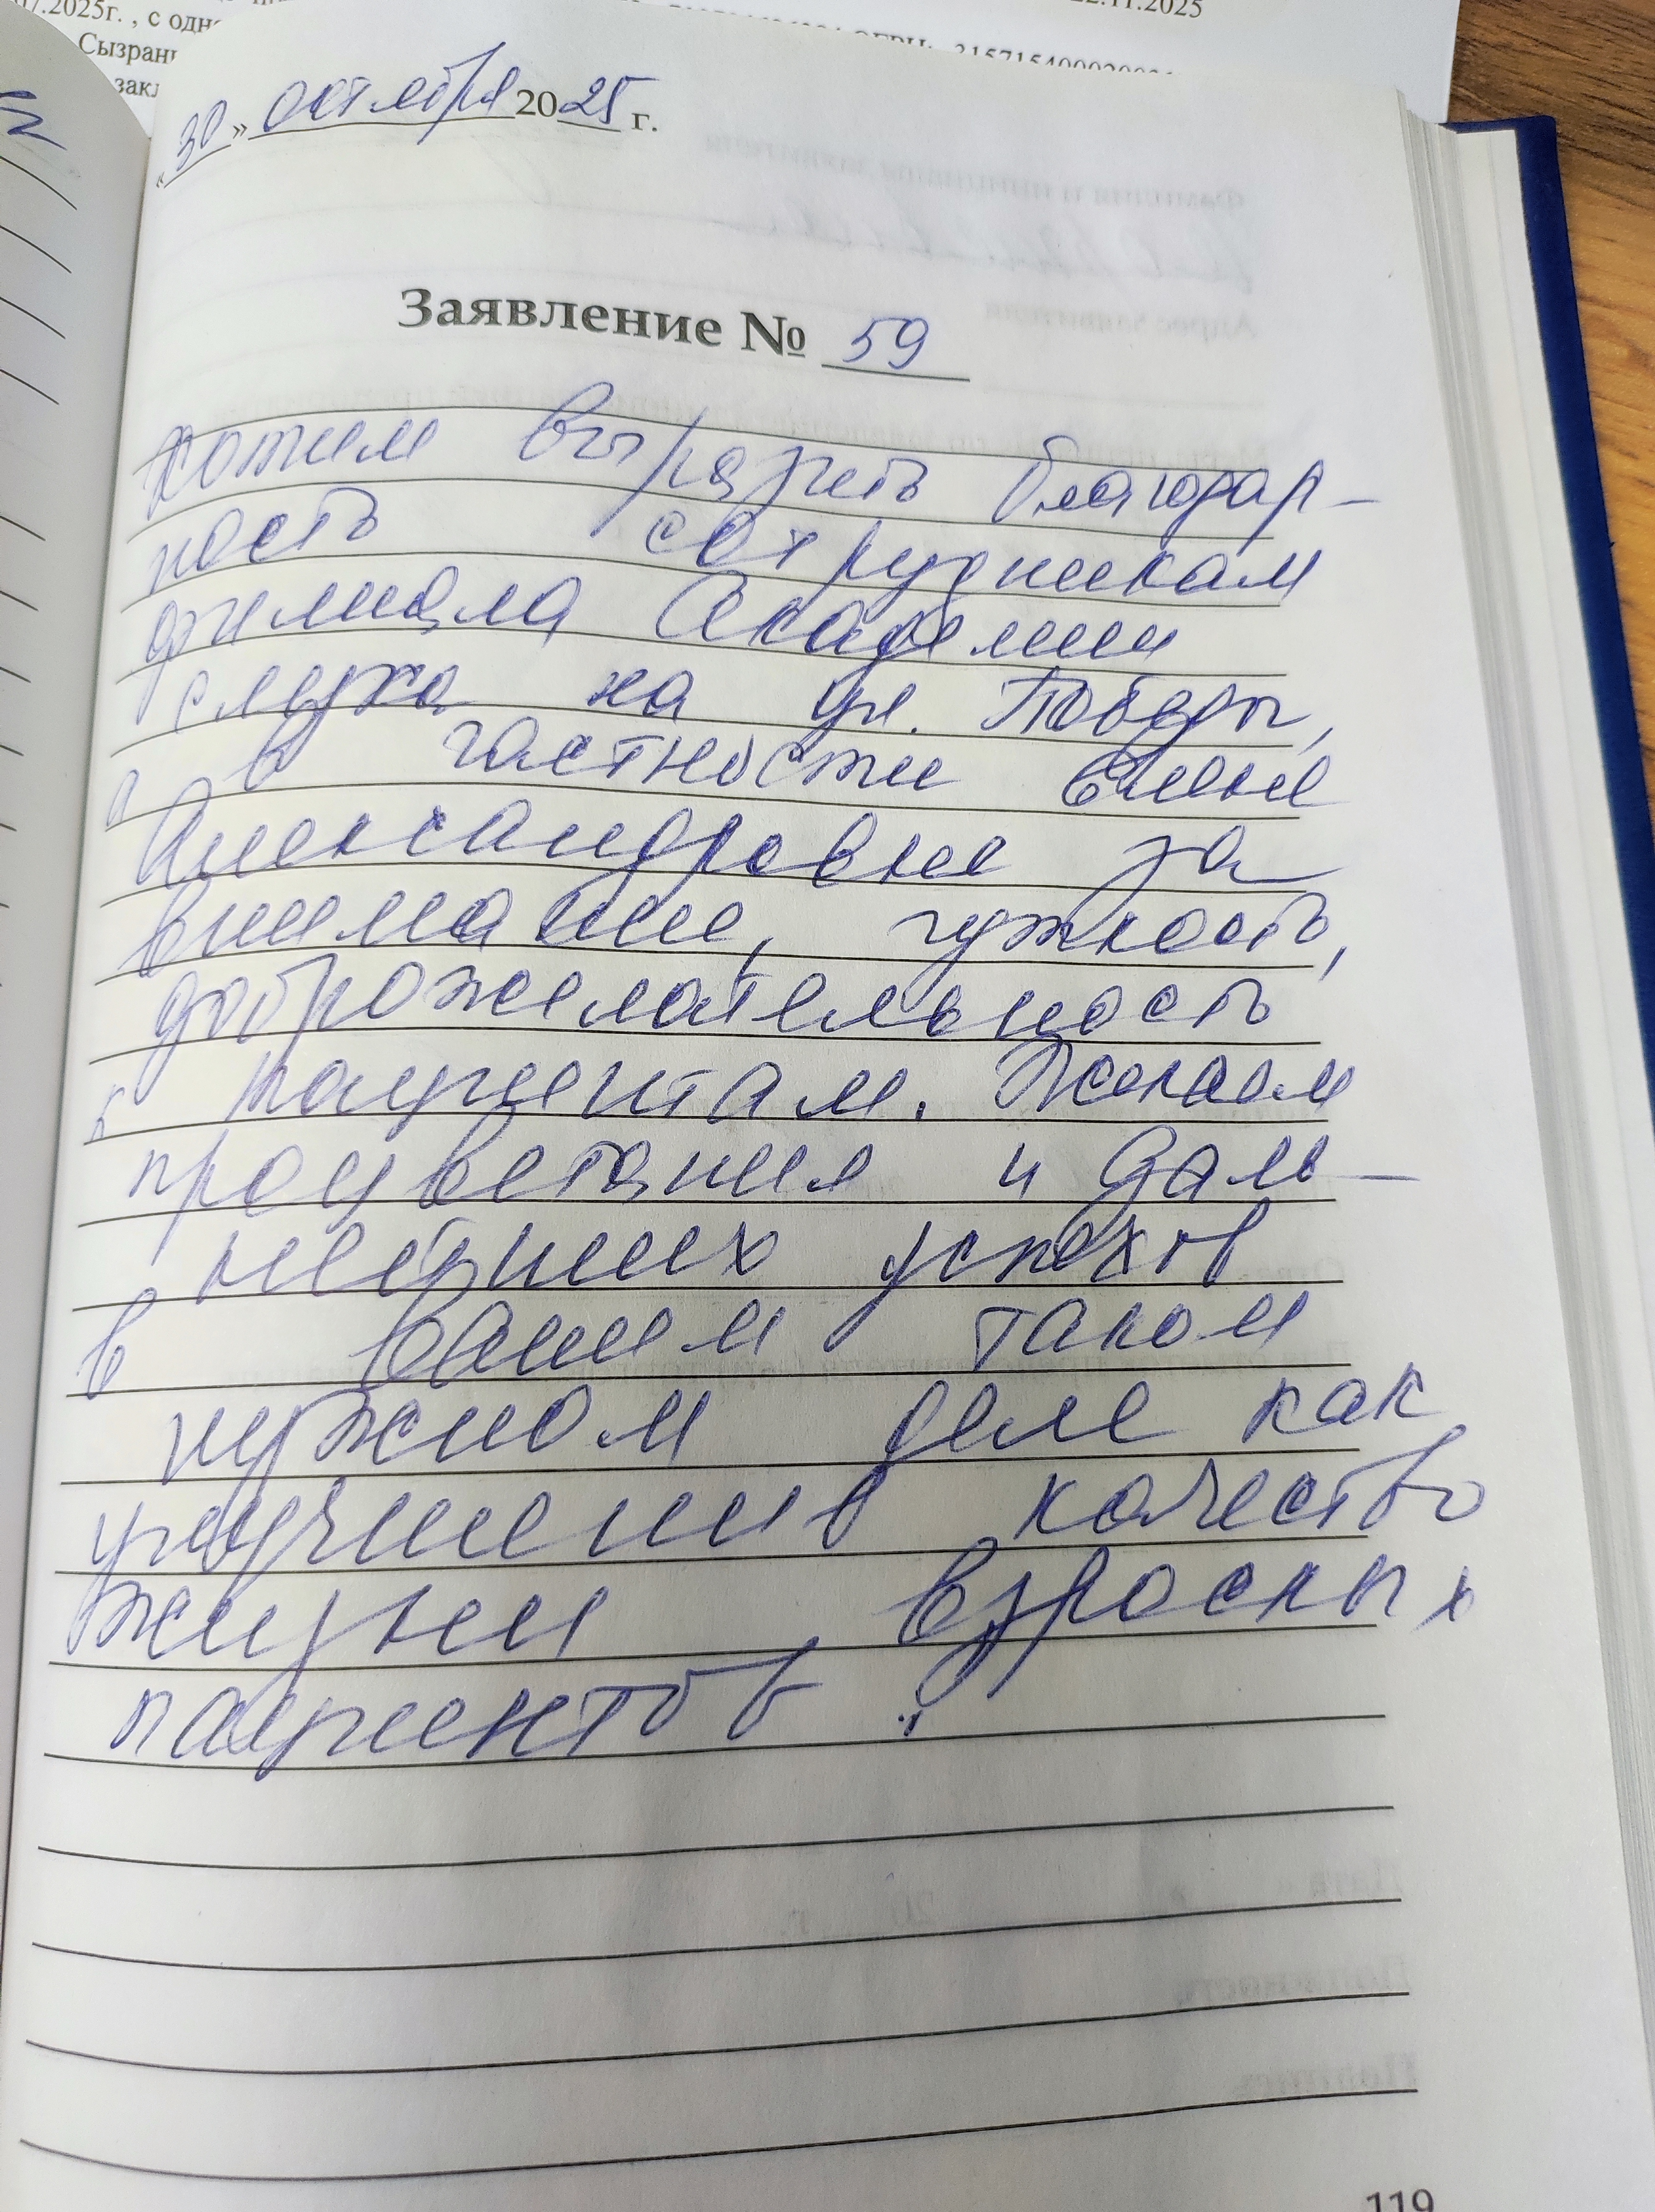 07.2025г. , с одн
22.11.2025
Сызран
закл
«30» октября 2025 г.
Заявление № 59
Хотим выразить благодар-
ность сотрудникам
филиала Академии
слуха на ул. Победы,
а в частности Елене
Александровне за
внимание, чуткость,
доброжелательность
к пациентам. Желаем
процветания и даль-
нейших успехов
в вашем таком
нужном деле как
улучшение качество
жизни взрослых
пациентов!
119